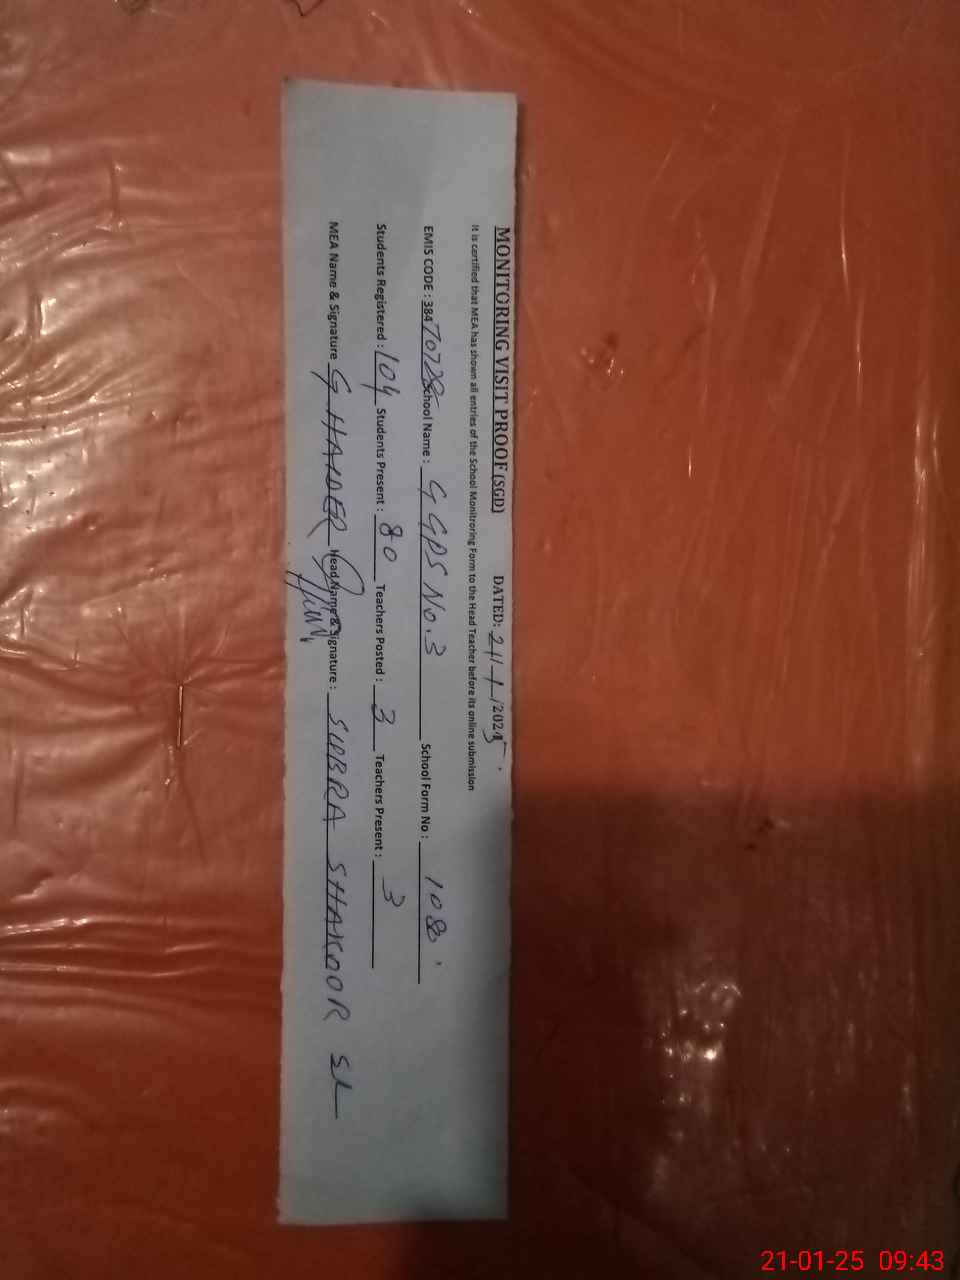 MONITORING VISIT PROOF(SGD) DATED: 21/1/2025.
It is certified that MEA has shown all entries of the School Monitroring Form to the Head Teacher before its online submission
EMIS CODE : 38470728 School Name : GGPS No.3 School Form No : 108
Students Registered : 104 Students Present : 80 Teachers Posted : 3 Teachers Present : 3
MEA Name & Signature G HAIDER Head Name & Signature : SHAKOOR
21-01-25 09:43